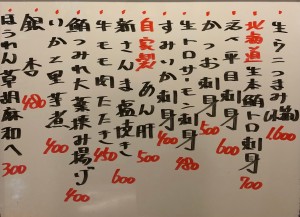 生ウニつまみ 1600
北海道生本鮪トロ刺身 700
えんがわ平目刺身 600
かつお刺身 500
生トロサーモン刺身 480
すみいか刺身 400
自家製あん肝 500
新さんま塩焼き 600
牛モモ肉たたき 450
鮪つみれ大葉挟み揚げ 400
いかと里芋煮 400
銀杏 480
ほうれん草胡麻和え 300